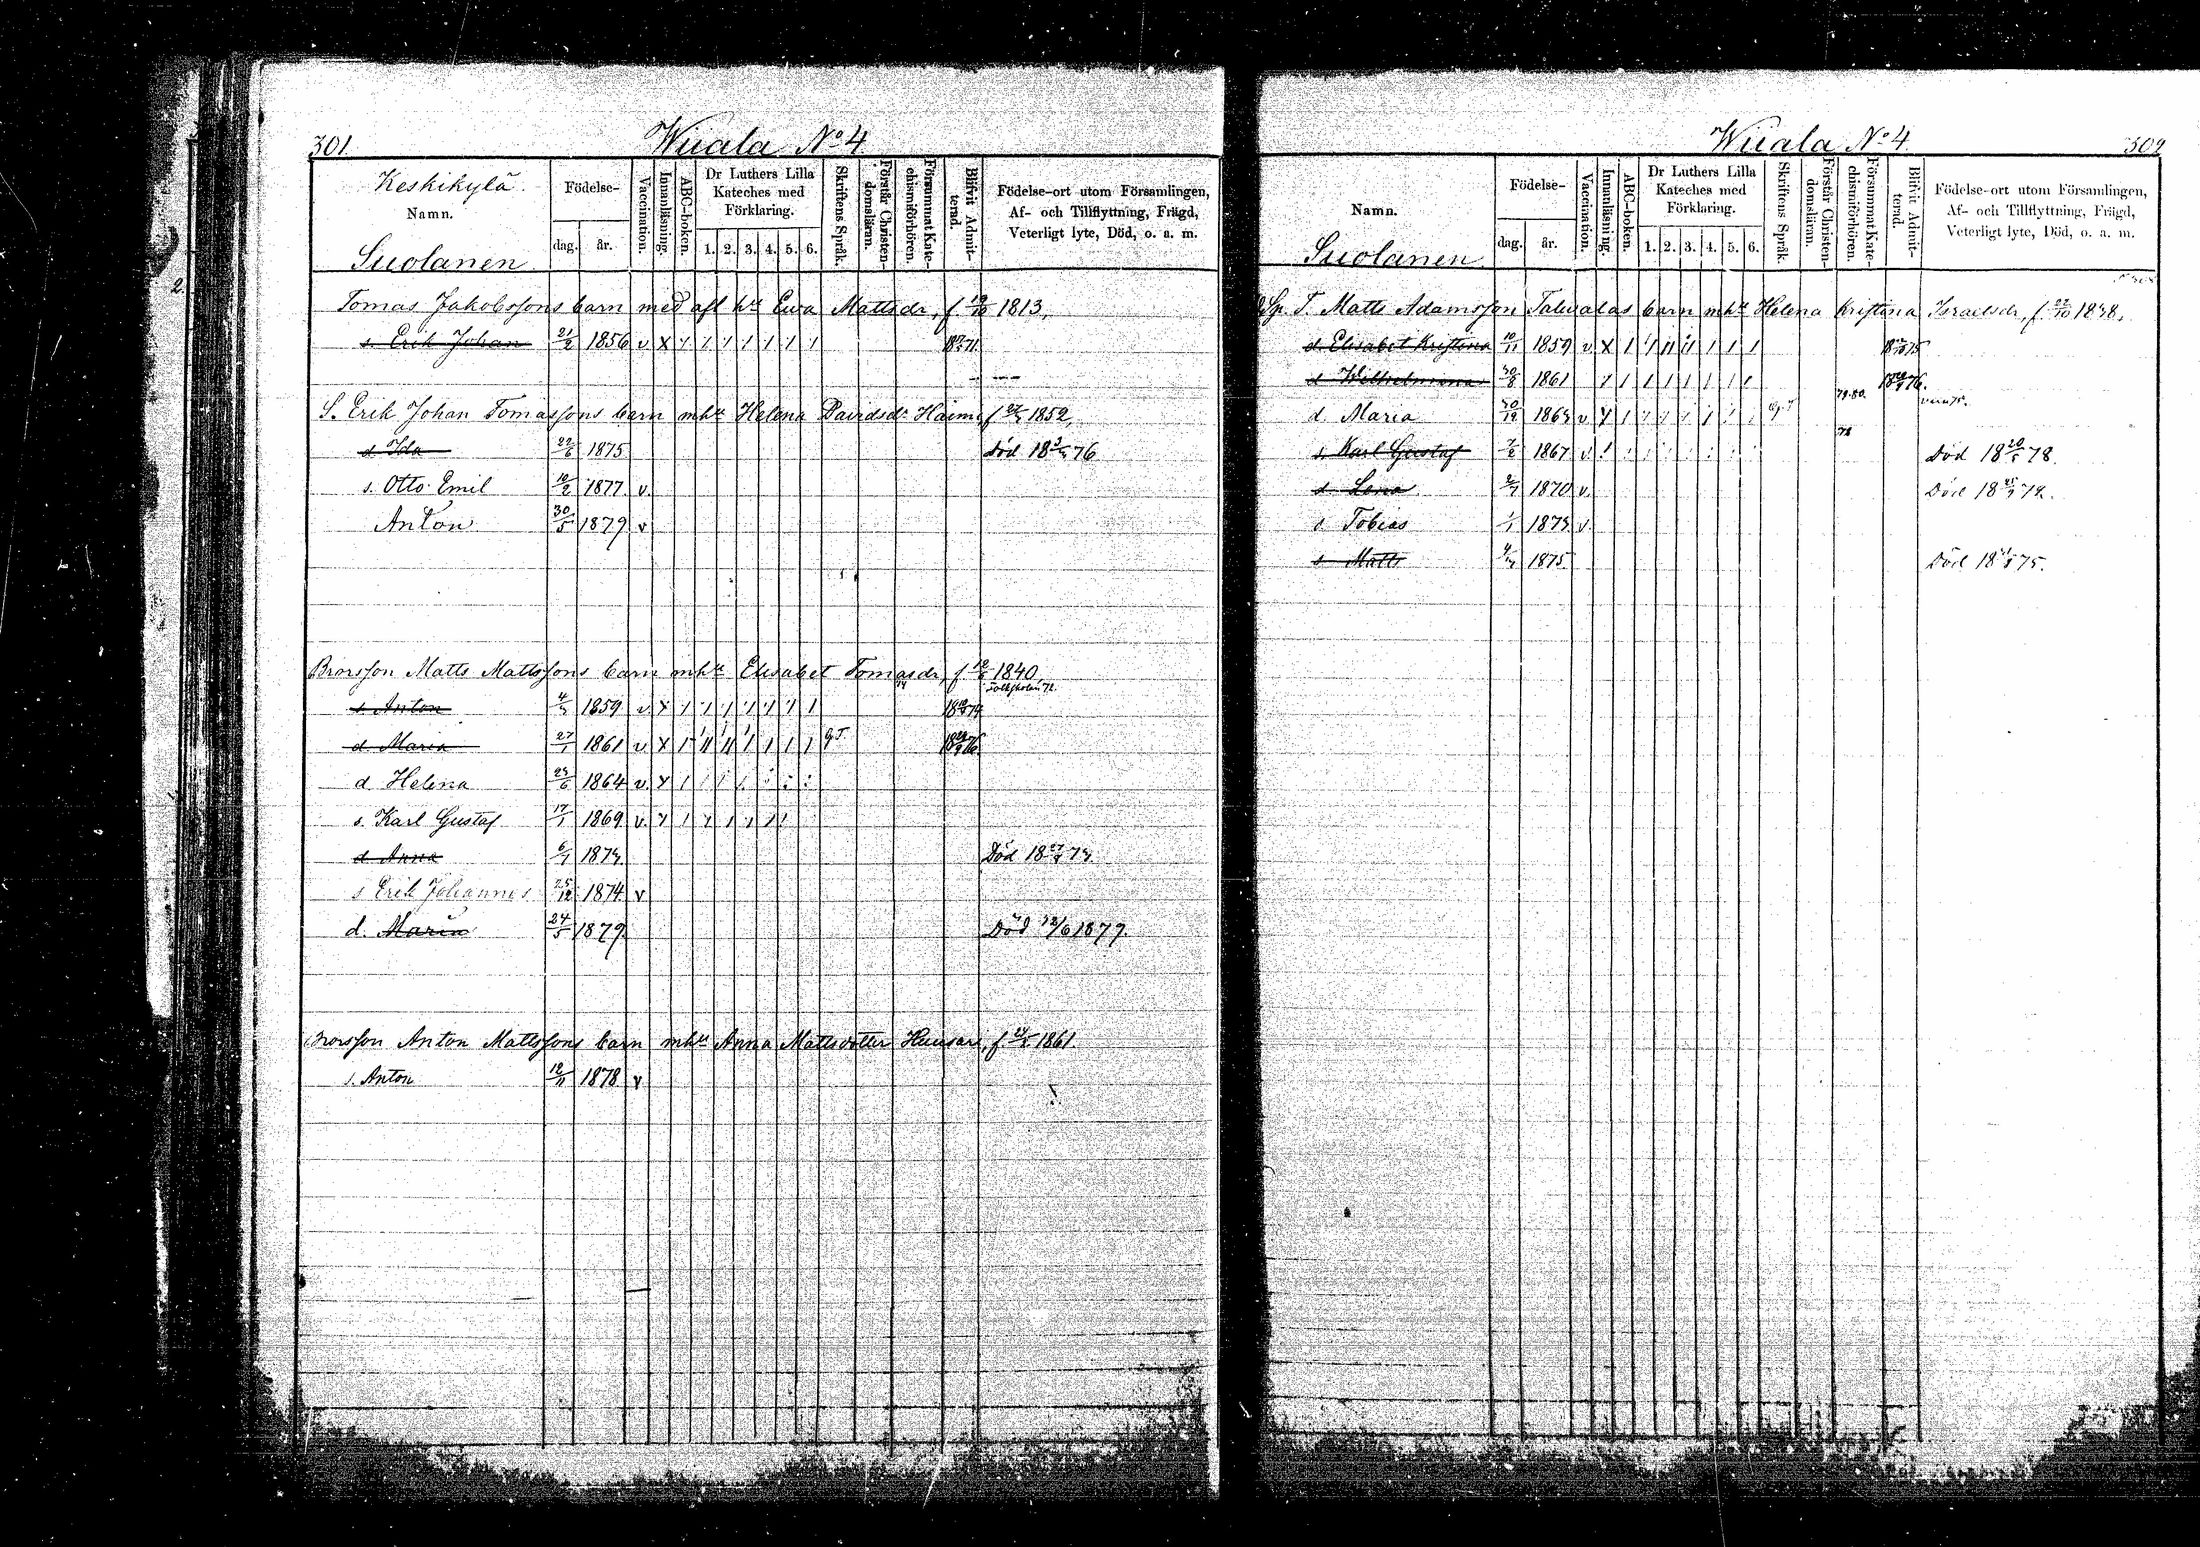 301.
Wiiala No 4
Keskikylä.
Namn.
Suolanen
Födelse-
dag. år.
Vaccination.
Innanläsning.
ABC-boken.
Dr Luthers Lilla Kateches med Förklaring.
1. 2. 3. 4. 5. 6.
Skriftens Språk.
Förstår Christendomsläran.
Försummat Katechismiförhören.
Blifvit Admitterad.
Födelse-ort utom Församlingen, Af- och Tillflyttning, Frägd, Veterligt lyte, Död, o. a. m.
Tomas Jakobssons barn med afl hu Ewa Mattsdr, f 19/10 1813,
s. Erik Johan 21/2 1856 v X 1 1 1 1 1 1 1
S. Erik Johan Tomassons barn mhu Helena Davidsdr Haim f 1852,
d Ida 22/6 1875 död 18 76
s. Otto Emil 10/2 1877 v.
Anton 30/5 1879 v
Brorsson Matts Mattssons barn mhu Elisabet Tomasdr, f 1840,
s. Anton 1859 v. X 1 1 1 1 1 1 1
d. Maria 27/1 1861 v X 1 11 11 1 1 1 1 g.T.
d Helena 1864 v. X 1 1 1 1
s. Karl Gustaf 17/1 1869 v. 1 1 1 1 1 1
d Anna 6/1 Död
s Erik Johannes 25/12 1874 v
d. Maria 24/5 1879. Död 12/6 1879.
Brorsson Anton Mattssons barn mhu Anna Mattsdotter Huusari, f 1861
s. Anton 12/11 1878 v
302
Wiiala No 4
Namn.
Suolanen
Födelse-
dag. år.
Vaccination.
Innanläsning.
ABC-boken.
Dr Luthers Lilla Kateches med Förklaring.
1. 2. 3. 4. 5. 6.
Skriftens Språk.
Förstår Christendomsläran.
Försummat Katechismiförhören.
Blifvit Admitterad.
Födelse-ort utom Församlingen, Af- och Tillflyttning, Frägd, Veterligt lyte, Död, o. a. m.
T. Matts Adamsson Talvalas barn mhu Helena Kristina Israelsdr, f 22/10 1838,
d Elisabet Kristina 10/11 1859 v X 1 1 11 11 1 1 1
d Wilhelmina 30/8 1861 1 1 1 1 1 1 1 1
79.80.
d. Maria 30/12 v X 1 1 1 1 1 1 1 g.T
78
s. Karl Gustaf 7/2 1867 v 1 Död 18 78.
d. Lena 1870 v. Död 18
s. Tobias 1/1 v.
s Matts 1875. Död 18 75.